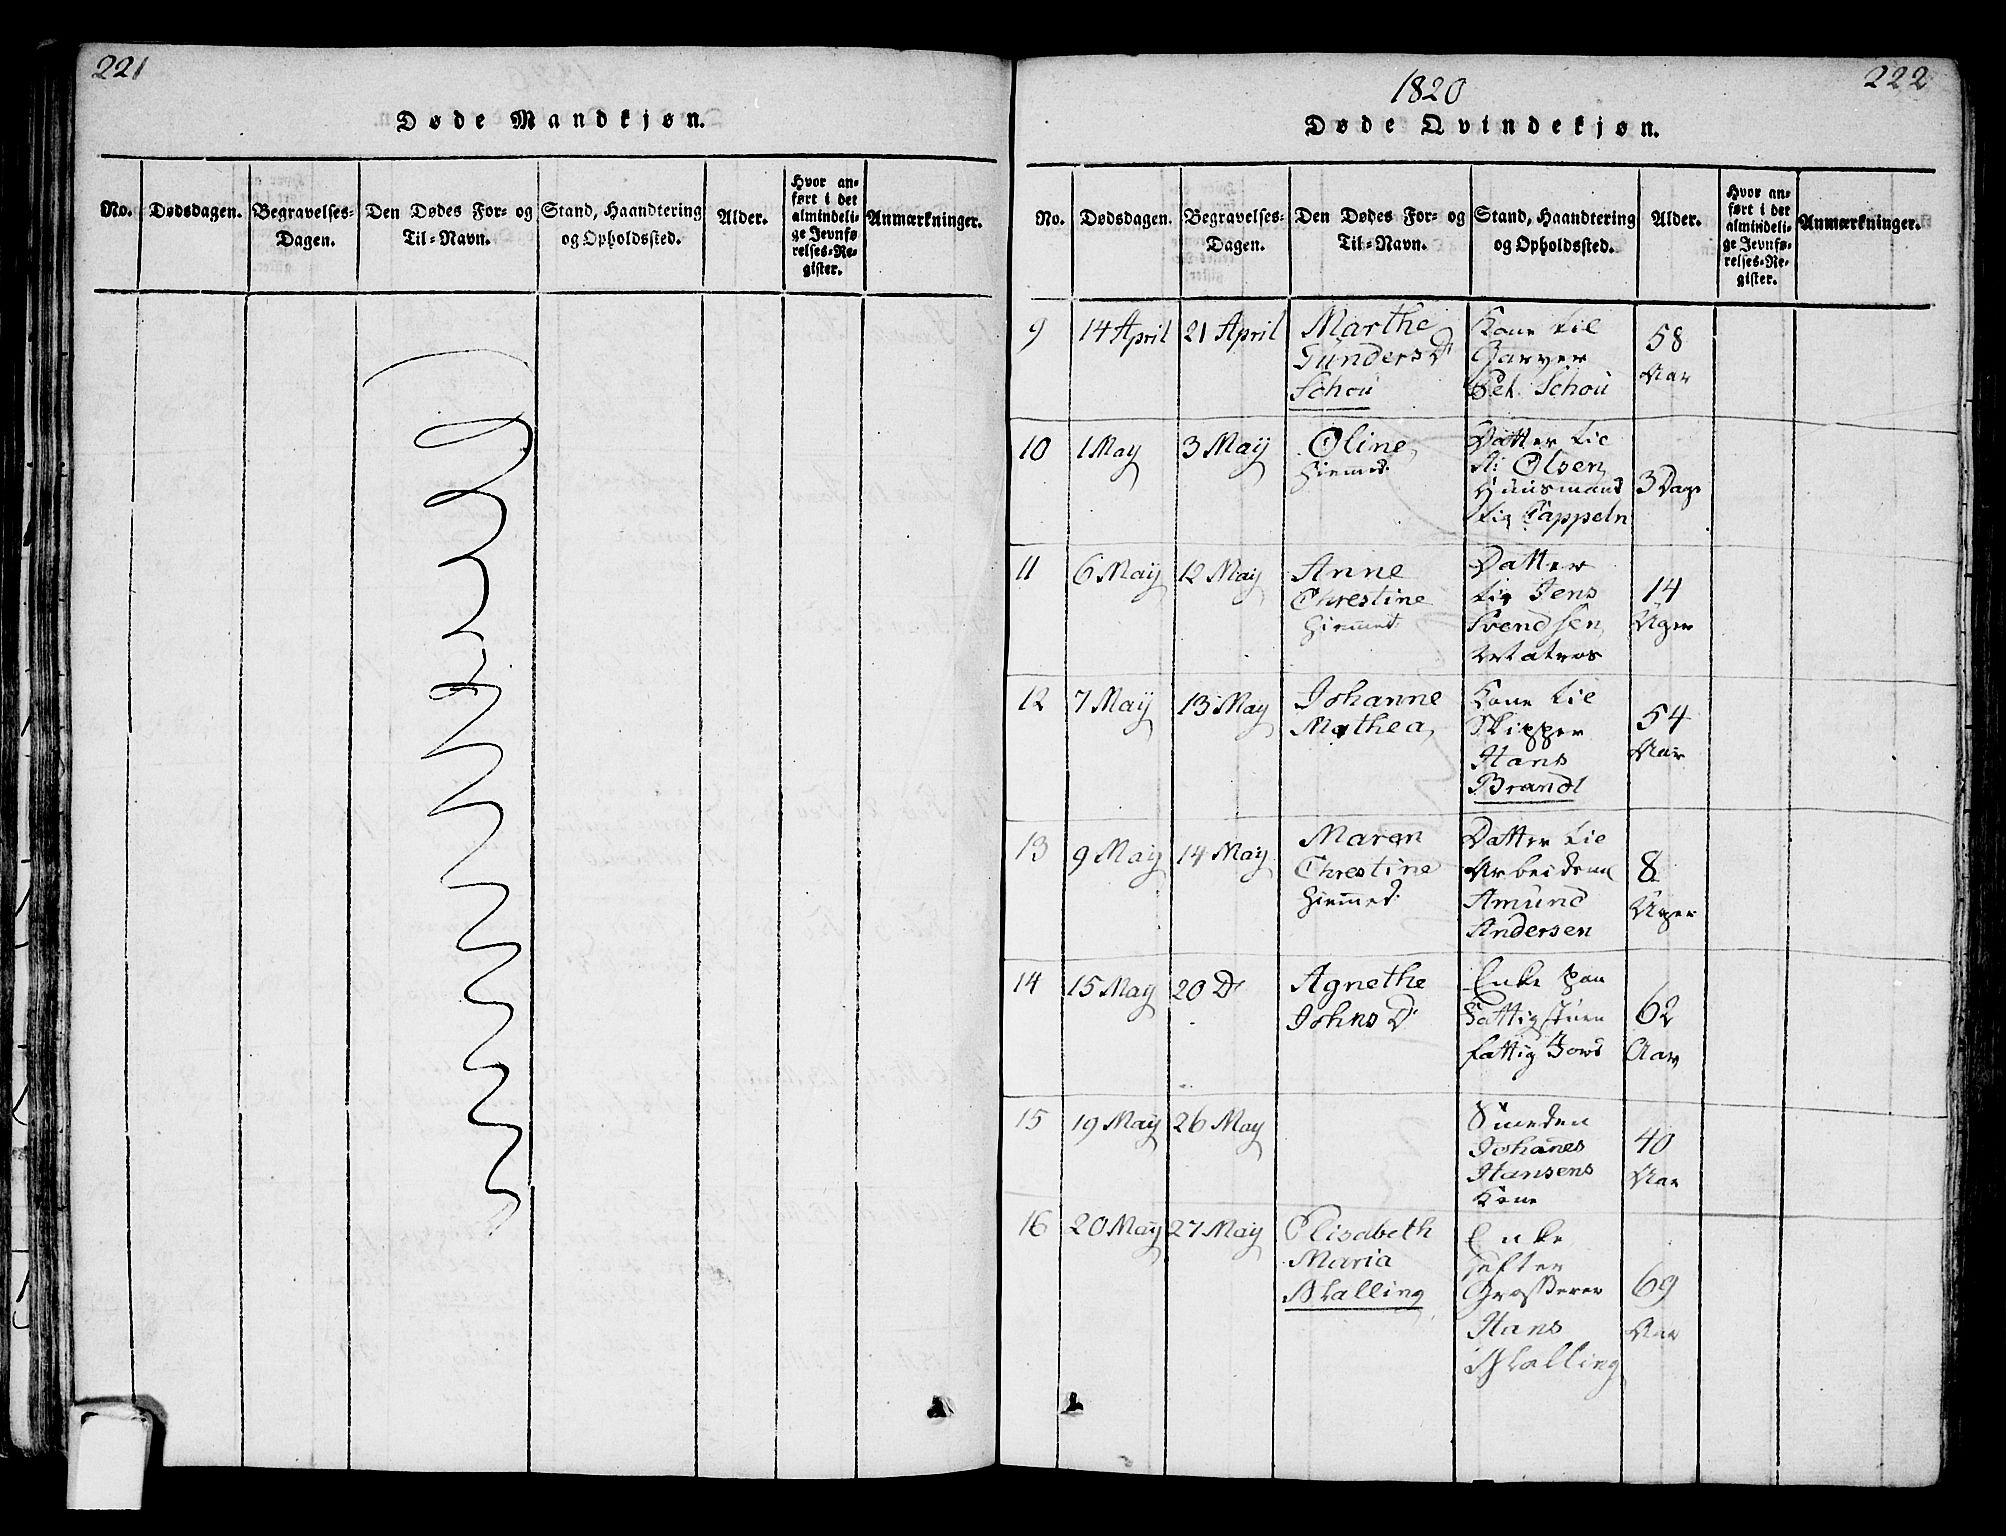 221
Døde Mandkjøn.
No.
Dødsdagen.
Begravelses-
Dagen.
Den Dødes For- og
Til-Navn.
Stand, Haandtering
og Opholdssted.
Alder.
Hvor an-
ført i det
almindeli-
ge Jevnfø-
relses-Re-
gister.
Anmærkninger.
222
1820
Døde Qvindekjøn.
No.
Dødsdagen.
Begravelses-
Dagen.
Den Dødes For- og
Til-Navn.
Stand, Haandtering
og Opholdssted.
Alder.
Hvor an-
ført i det
almindeli-
ge Jevnfø-
relses-Re-
gister.
Anmærkninger.
9
14 April
21 April
Marthe
Gunders D
Schou
Kone til
Garver
Schou
58
Aar
10
1 May
3 Maÿ
Oline
Hiemmed.
Datter til
Olsen
Huusmand
Cappeln
3 Dage
11
6 Maÿ
12 Maÿ
Anne
Chrestine
Hiemmed.
Datter
til Jens
Svendsen
Matros
14
Uger
12
7 Maÿ
13 Maÿ
Johanne
Mathea
Kone til
Skipper
Hans
Brandt
54
Aar
13
9 Maÿ
14 Maÿ
Maren
Chrestine
Hiemmed.
Datter til
Arbeidsm
Amund
Andersen
8
Uger
14
15 Maÿ
20 D
Agnethe
Johns D
Enke paa
Fattigstuen
fattig Jord
62
Aar
15
19 Maÿ
26 Maÿ
Smeden
Johanes
Hansens
Kone
40
Aar
16
20 Maÿ
27 Maÿ
Elisabeth
Maria
Skalling
Enke
efter
Grosserer
Hans
Skalling
69
Aar